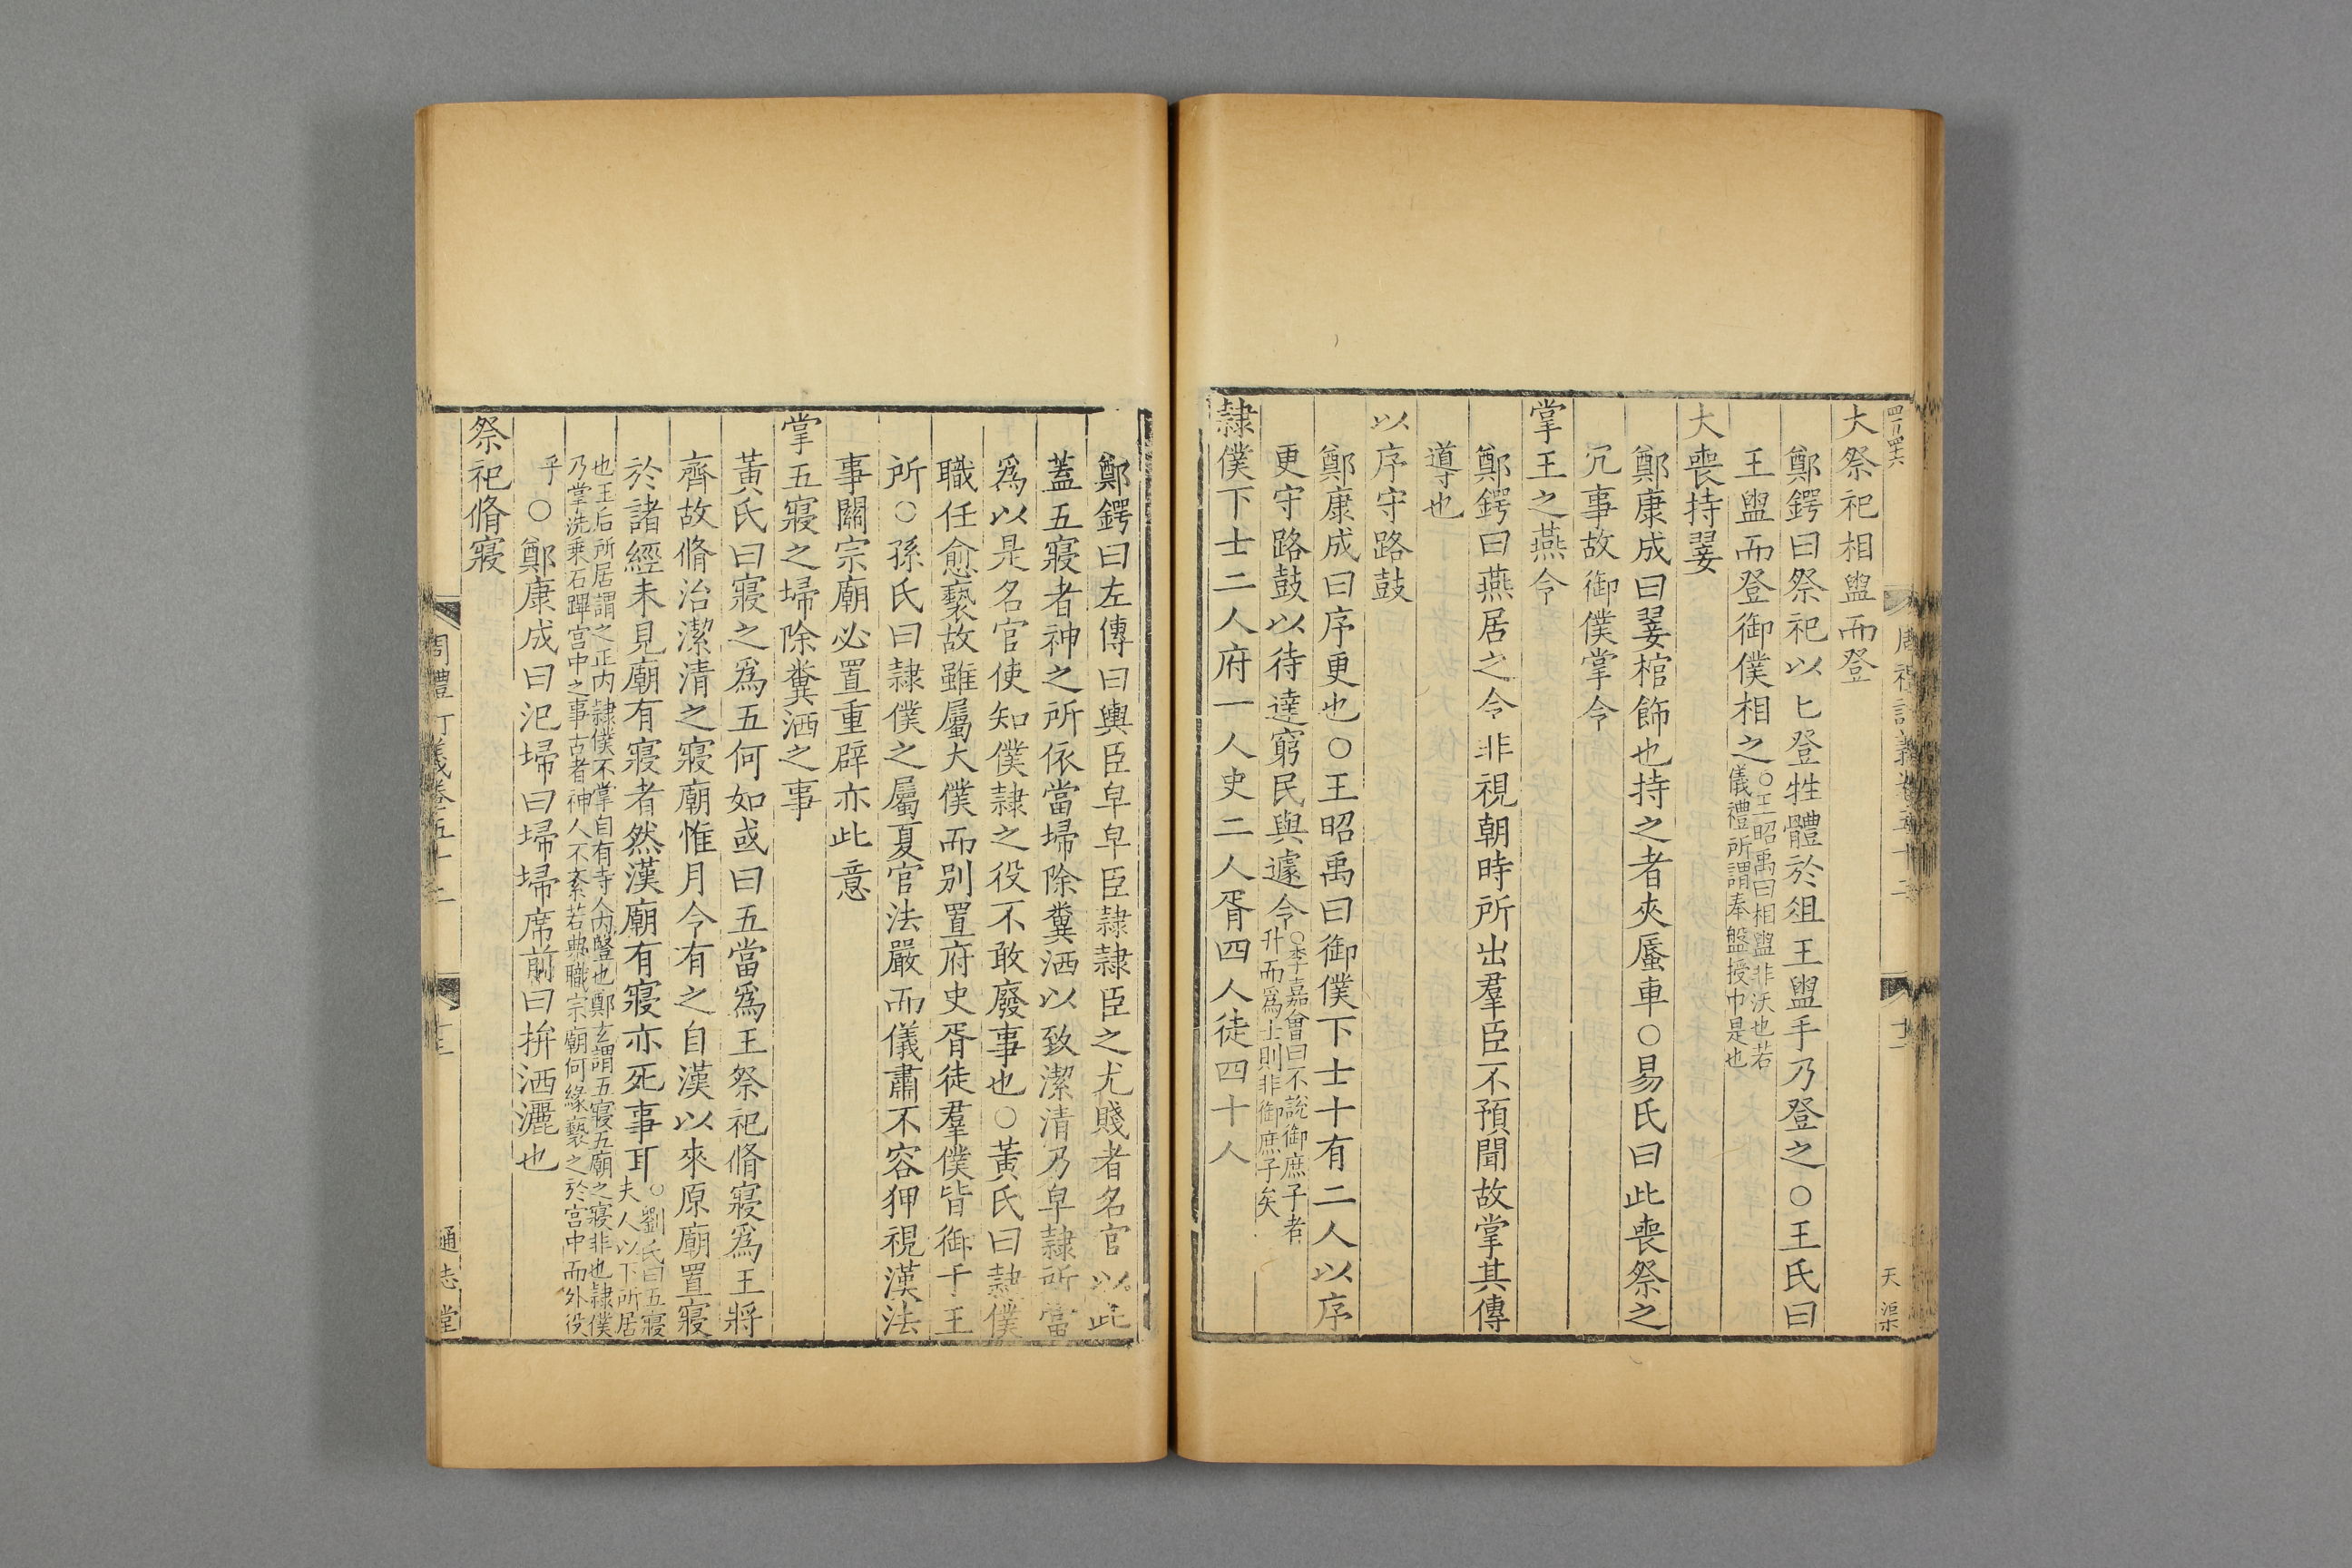 大祭祀相盥而登
鄭鍔曰祭祀以匕登牲體於俎王盥手乃登之○王氏曰
王盥而登御僕相之○王昭禹曰相盥非沃也若儀禮所謂奉盤授巾是也
大喪持翣
鄭康成曰翣棺飾也持之者夾蜃車○易氏曰此喪祭之
冗事故御僕掌令
掌王之燕令
鄭鍔曰燕居之令非視朝時所出羣臣不預聞故掌其傳
導也
以序守路鼓
鄭康成曰序更也○王昭禹曰御僕下士十有二人以序
更守路鼓以待達窮民與遽令○李嘉會曰不說御庶子者升而爲士則非御庶子矣
隷僕下士二人府一人史二人胥四人徒四十人
天渠
鄭鍔曰左傳曰輿臣皁皁臣隷隷臣之尤賤者名官以此
蓋五寢者神之所依當埽除糞洒以致潔清乃皁隷所當
爲以是名官使知僕隷之役不敢廢事也○黃氏曰隷僕
職任愈褻故雖屬大僕而别置府史胥徒羣僕皆御于王
所○孫氏曰隷僕之屬夏官法嚴而儀肅不容狎視漢法
事關宗廟必置重辟亦此意
掌五寢之埽除糞洒之事
黃氏曰寢之爲五何如或曰五當爲王祭祀脩寢爲王將
齊故脩治潔清之寢廟惟月令有之自漢以來原廟置寢
於諸經未見廟有寢者然漢廟有寢亦死事耳○劉氏曰五寢夫人以下所居
也王后所居謂之正内隷僕不掌自有寺人内豎也鄭玄謂五寢五廟之寢非也隷僕
乃掌洗乘石蹕宫中之事古者神人不紊若典職宗廟何緣褻之於宫中而外役
乎○鄭康成曰氾埽曰埽埽席前曰拚洒灑也
祭祀脩寢
周禮訂義卷五十二
十三
通志堂